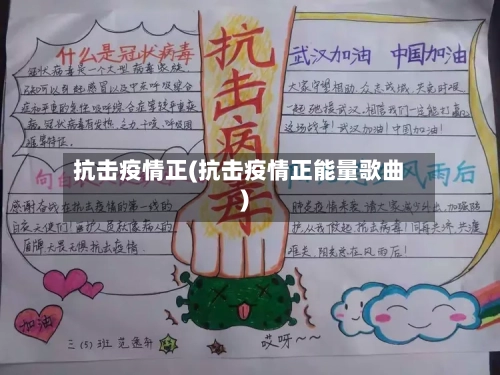 什么是冠状病毒
冠状病毒是一个大型病毒家族,
已知可以引起感冒以及中东呼吸综合
征和严重急性呼吸综合征等较严重疾
病。冠状病毒有发热、乏力、干咳、呼吸困
难等特征。
抗击病毒
武汉加油 中国加油
大家守望相助,众志成城,共克时艰,
一起驰援武汉,相信我们一定能打赢
这场战争!武汉加油!中国加油!
抗击疫情正(抗击疫情正能量歌曲
)
向白
感谢奋战在抗击疫情的第一线的
白衣天使们!
盾牌大无畏抗击疫情。
风雨后
护,从我做起,抗击病毒!同舟共济,共渡
难关,阳光总在风雨后!
加油
三(5)班
哎呀~~